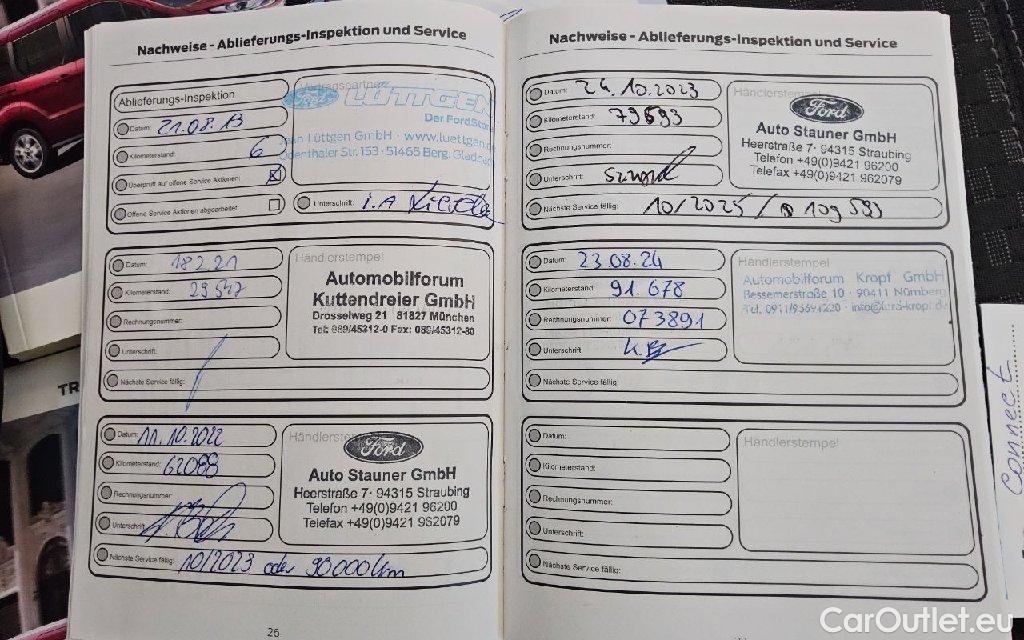 Nachweise - Ablieferungs-Inspektion und Service
Ablieferungs-Inspektion
Datum: 21.08.13
Kilometerstand: 6
Überprüft auf offene Service Aktionen:
Offene Service Aktionen abgearbeitet
Ford LÜTTGEN
Der FordStore
Lüttgen GmbH · www.luettgen.
Odenthaler Str. 153 · 51465 Berg. Gladbach
Unterschrift: i.A
Datum: 18 2 21
Kilometerstand: 29547
Rechnungsnummer:
Unterschrift:
Nächste Service fällig:
Händlerstempel
Automobilforum
Kuttendreier GmbH
Drosselweg 21 81827 München
Tel: 089/45312-0 Fax: 089/45312-80
Datum: 11.10.2022
Kilometerstand: 62088
Rechnungsnummer
Unterschrift
Nächste Service fällig: 10/2023 oder 90000km
Händlerstempel
Ford
Auto Stauner GmbH
Heerstraße 7 · 94315 Straubing
Telefon +49(0)9421 96200
Telefax +49(0)9421 962079
26
Nachweise - Ablieferungs-Inspektion und Service
Datum: 24.10.2023
Kilometerstand: 79593
Rechnungsnummer:
Unterschrift:
Nächste Service fällig: 10/2025 / 109 593
Händlerstempel
Ford
Auto Stauner GmbH
Heerstraße 7 · 94315 Straubing
Telefon +49(0)9421 96200
Telefax +49(0)9421 962079
Datum: 23.08.24
Kilometerstand: 91.678
Rechnungsnummer: 073891
Unterschrift
Nächste Service fällig:
Händlerstempel
Automobilforum Kropf GmbH
Bessemerstraße 10 · 90411 Nürnberg
Datum:
Kilometerstand:
Rechnungsnummer:
Unterschrift:
Nächste Service fällig:
Händlerstempel
TR
Connect
CarOutlet.eu